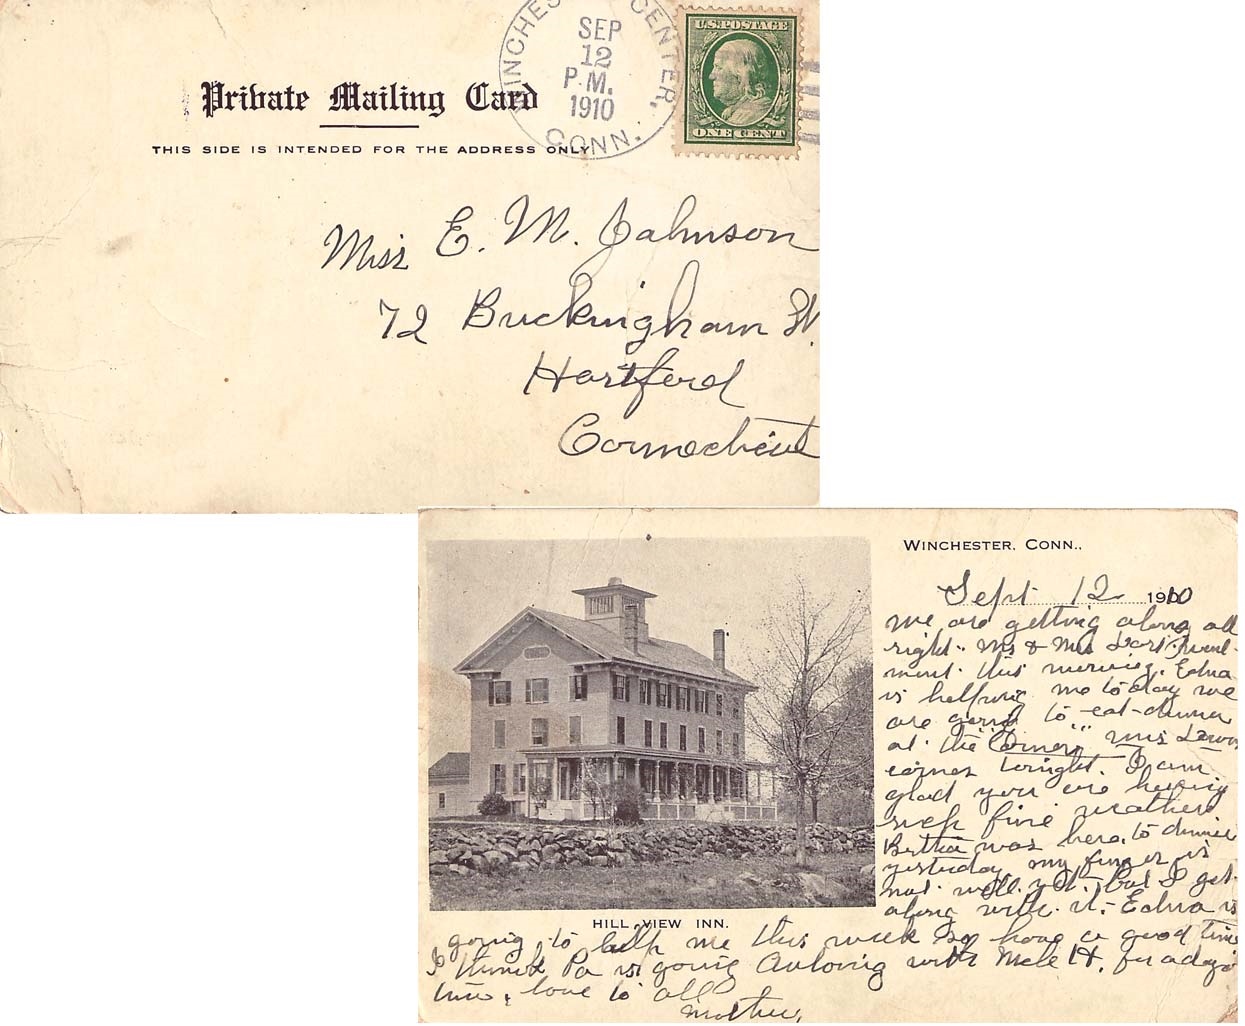 WINCHESTER CENTER,
SEP
12
P.M.
1910
CONN.
U.S. POSTAGE
ONE CENT
Private Mailing Card
THIS SIDE IS INTENDED FOR THE ADDRESS ONLY
Miss E. M. Johnson
72 Buckingham St.
Hartford
Connecticut
WINCHESTER, CONN.,
Sept 12 1910
We are getting along all
right. Mr & Mrs went
this morning. Edna
is helping me to day we
are going to eat dinner
at the Corner Mrs
comes tonight. I am
glad you are having
such fine weather
Bertha was here to dinner
yesterday my finger is
not well yet but I get
along with it. Edna is
HILL VIEW INN.
going to help me this week so have a good time
I think Pa is going with H. for a days
love to all
Mother.